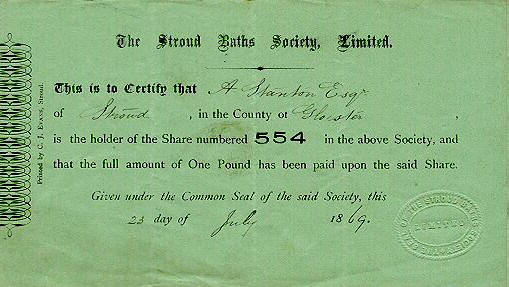 The Stroud Baths Society, Limited.
This is to Certify that A Stanton Esqr
of Stroud, in the County of Gloester,
is the holder of the Share numbered 554 in the above Society, and
that the full amount of One Pound has been paid upon the said Share.
Given under the Common Seal of the said Society, this
23 day of July 1869.
Printed by C. J. Evans, Stroud.
THE STROUD BATHS SOCIETY
LIMITED